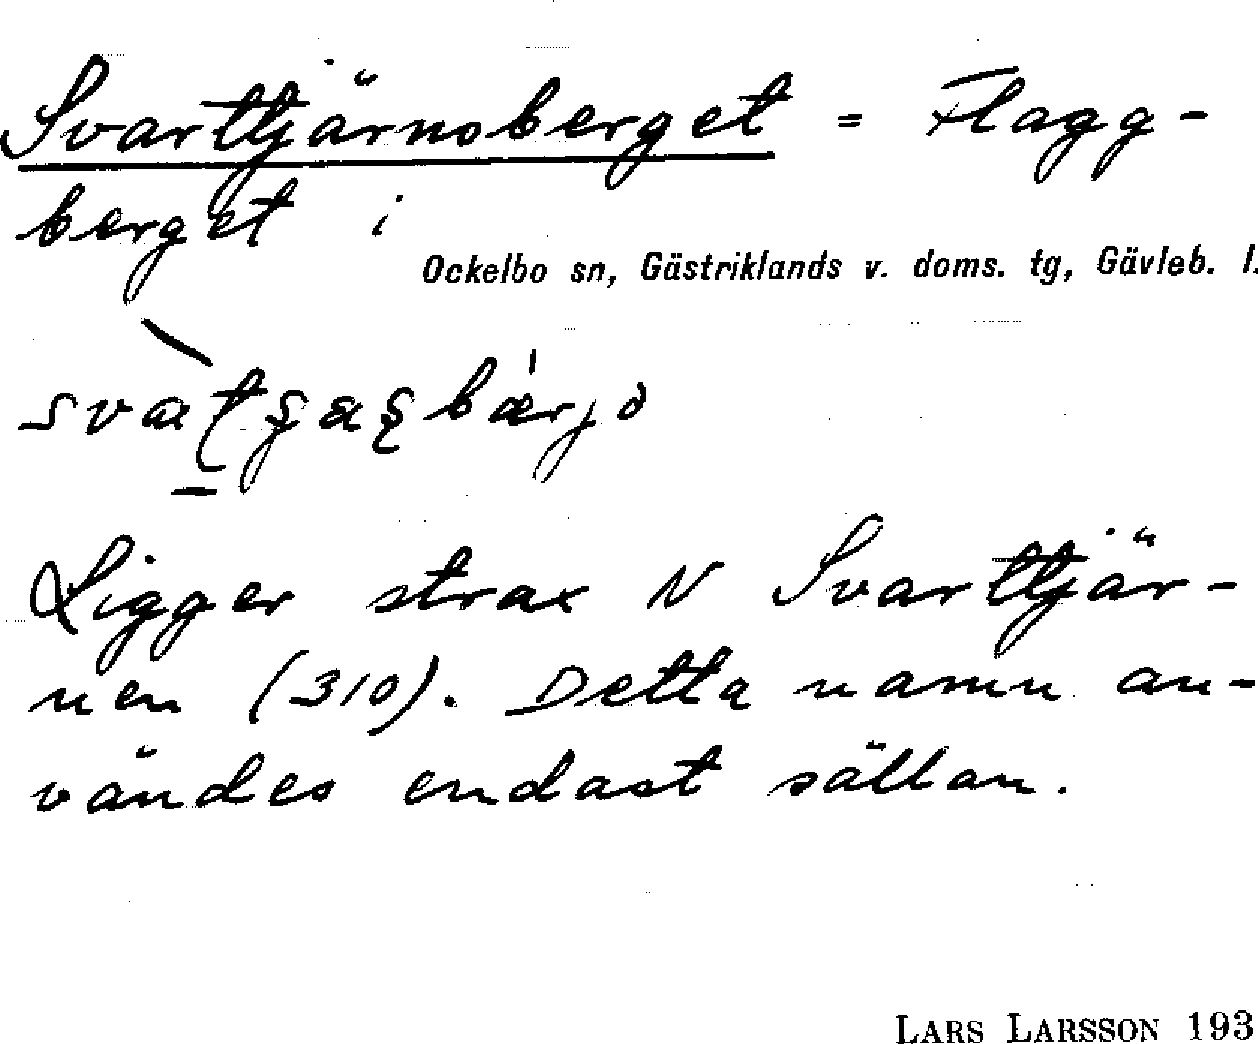 Svarttjärnsberget = Flagg-
berget i
Ockelbo sn, Gästriklands v. doms. tg, Gävleb. l.
Ligger strax N Svarttjär-
nen (310). Detta namn an-
vändes endast sällan.
LARS LARSSON 193